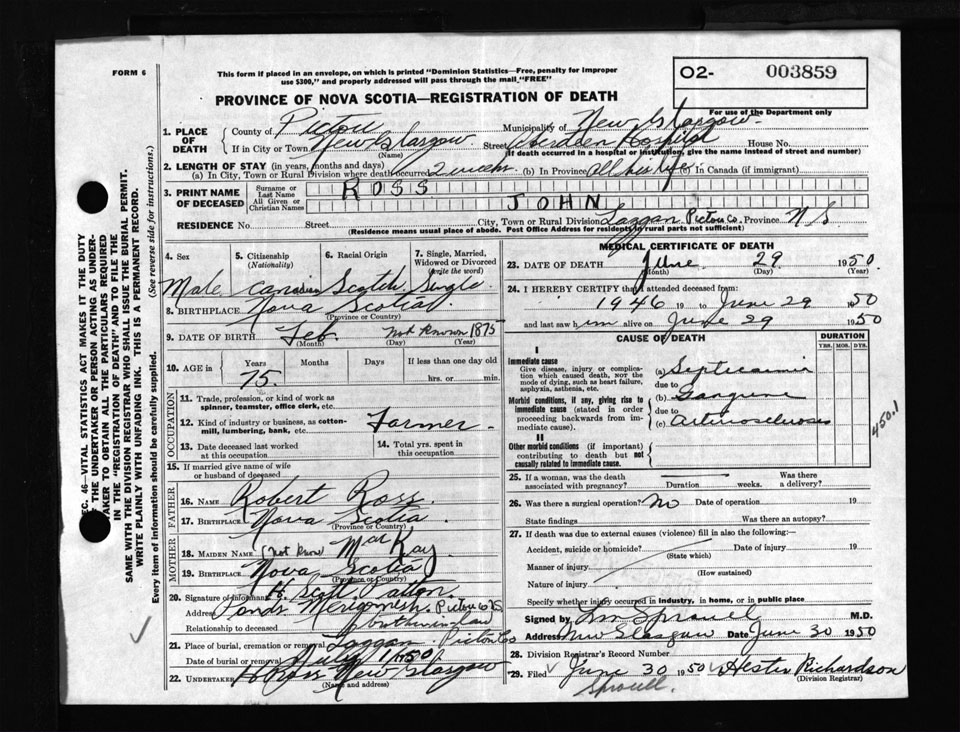 FORM 6
This form if placed in an envelope, on which is printed "Dominion Statistics—Free, penalty for improper
use $300," and properly addressed will pass through the mail, "FREE"
O2- 003859
For use of the Department only
PROVINCE OF NOVA SCOTIA—REGISTRATION OF DEATH
1. PLACE OF DEATH
County of Pictou Municipality of New Glasgow
If in City or Town New Glasgow Street Aberdeen Hospital House No.
(Name) (If death occurred in a hospital or institution, give the name instead of street and number)
2. LENGTH OF STAY (in years, months and days)
(a) In City, Town or Rural Division where death occurred 2 weeks (b) In Province All his life (c) In Canada (if immigrant)
3. PRINT NAME OF DECEASED
Surname or Last Name ROSS
All Given or Christian Names JOHN
RESIDENCE No. Street City, Town or Rural Division Laggan Pictou Co. Province N S
(Residence means usual place of abode. Post Office Address for residents in rural parts not sufficient)
4. Sex 5. Citizenship (Nationality) 6. Racial Origin 7. Single, Married, Widowed or Divorced (write the word)
Male Canadian Scotch Single
8. BIRTHPLACE Nova Scotia
(Province or Country)
9. DATE OF BIRTH Feb. Not Known 1875
(Month) (Day) (Year)
10. AGE in Years Months Days If less than one day old
75. hrs. or min.
OCCUPATION
11. Trade, profession, or kind of work as spinner, teamster, office clerk, etc.
12. Kind of industry or business, as cotton-mill, lumbering, bank, etc. Farmer
13. Date deceased last worked at this occupation
14. Total yrs. spent in this occupation
15. If married give name of wife or husband of deceased
FATHER
16. NAME Robert Ross
17. BIRTHPLACE Nova Scotia
(Province or Country)
MOTHER
18. MAIDEN NAME (Not Know) MacKay
19. BIRTHPLACE Nova Scotia
(Province or Country)
20. Signature of informant H. Scott Patton
Address Ponds Merigomish. Pictou Co NS
Relationship to deceased brother in law
21. Place of burial, cremation or removal Laggan Pictou Co
Date of burial or removal July 1 1950
22. UNDERTAKER H Ross New Glasgow
(Name and address)
MEDICAL CERTIFICATE OF DEATH
23. DATE OF DEATH June 29 1950
(Month) (Day) (Year)
24. I HEREBY CERTIFY that I attended deceased from:
1946 19 to June 29 1950
and last saw him alive on June 29 1950
CAUSE OF DEATH DURATION
YRS. MOS. DYS.
I
Immediate cause
Give disease, injury or complication which caused death, NOT the mode of dying, such as heart failure, asphyxia, asthenia, etc.
(a) Septicaemia
due to
Morbid conditions, if any, giving rise to immediate cause (stated in order proceeding backwards from immediate cause).
(b) Gangrene
due to
(c) Arteriosclerosis
450.1
II
Other morbid conditions (if important) contributing to death but not causally related to immediate cause.
25. If a woman, was the death associated with pregnancy? Duration weeks. Was there a delivery?
26. Was there a surgical operation? No Date of operation 19
State findings Was there an autopsy?
27. If death was due to external causes (violence) fill in also the following:—
Accident, suicide or homicide? Date of injury 19
(State which)
Manner of injury
(How sustained)
Nature of injury
Specify whether injury occurred in industry, in home, or in public place
Signed by Sproull M.D.
Address New Glasgow Date June 30 1950
28. Division Registrar's Record Number
29. Filed June 30 1950 Hester Richardson
(Division Registrar)
Sproull.
SEC. 46—VITAL STATISTICS ACT MAKES IT THE DUTY
OF THE UNDERTAKER OR PERSON ACTING AS UNDER-
TAKER TO OBTAIN ALL THE PARTICULARS REQUIRED
IN THE "REGISTRATION OF DEATH" AND TO FILE THE
SAME WITH THE DIVISION REGISTRAR WHO SHALL ISSUE THE BURIAL PERMIT.
WRITE PLAINLY WITH UNFADING INK. THIS IS A PERMANENT RECORD.
Every item of information should be carefully supplied. (See reverse side for instructions.)